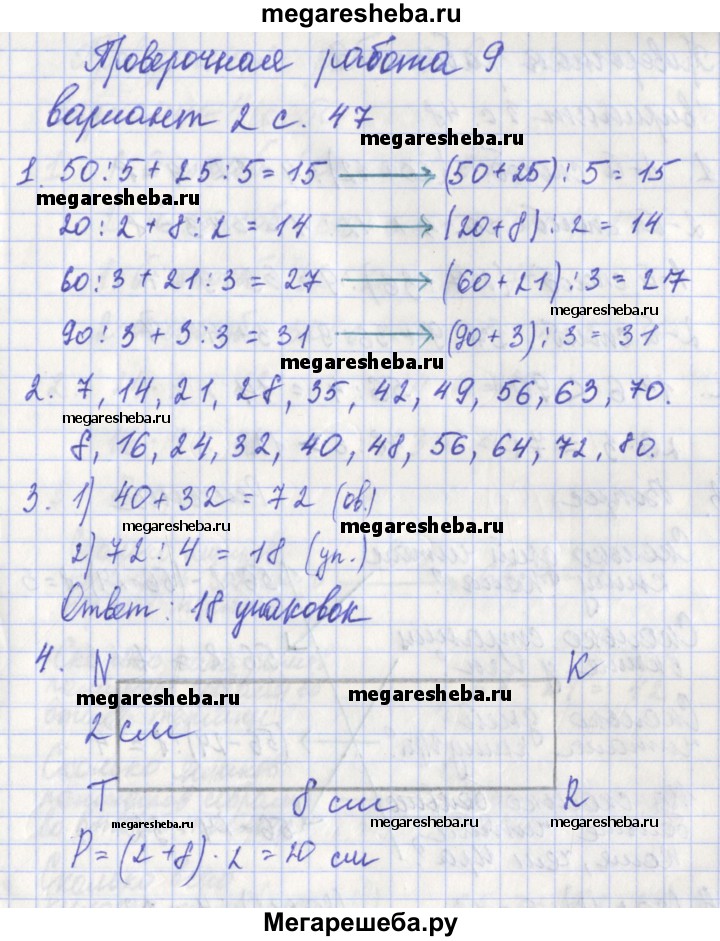 megaresheba.ru
Проверочная работа 9
вариант 2 с. 47
megaresheba.ru
1. 50:5 + 25:5 = 15 → (50+25):5 = 15
megaresheba.ru
20:2 + 8:2 = 14 → (20+8):2 = 14
60:3 + 21:3 = 27 → (60+21):3 = 27
megaresheba.ru
90:3 + 3:3 = 31 → (90+3):3 = 31
megaresheba.ru
2. 7, 14, 21, 28, 35, 42, 49, 56, 63, 70.
megaresheba.ru
8, 16, 24, 32, 40, 48, 56, 64, 72, 80.
3. 1) 40+32 = 72 (ов.)
megaresheba.ru megaresheba.ru
2) 72:4 = 18 (уп.)
Ответ: 18 упаковок
4. N K
megaresheba.ru megaresheba.ru
2 см
T 8 см R
megaresheba.ru megaresheba.ru megaresheba.ru
P = (2+8)·2 = 20 см
Мегарешеба.ру